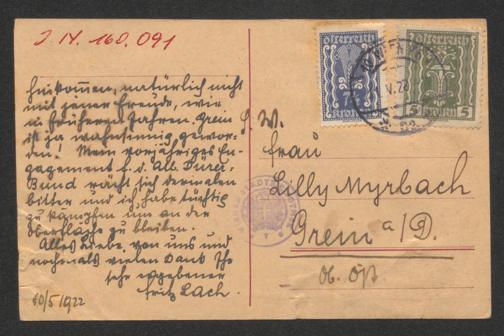 J.N. 160.091
hinkommen, natürlich nicht
mit jener Freude, wie
in früheren Jahren. Grein
ist ja wahnsinnig gewor-
den! Mein vorjähriges En-
gagement f. d. Alb. Dürer-
Bund rächt sich dermalen
bitter und ich habe tüchtig
zu kämpfen um an der
Oberfläche zu bleiben.
Alles Liebe, von uns und
nochmals vielen Dank Ihr
sehr ergebener
Fritz Lach.
10/5 1922
österreich
österreich
5
Kronen
5
W.
Frau
Lilly Myrbach
Grein a/D.
Ob. Öst